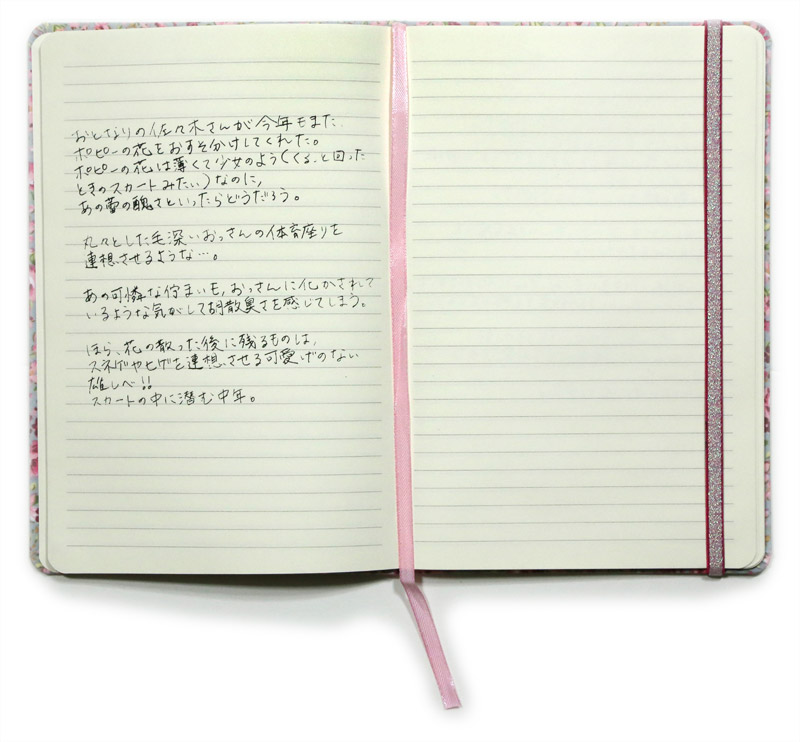 おとなりの佐々木さんが今年もまた
ポピーの花をおすそ分けしてくれた。
ポピーの花は薄くて少女のよう(くるっと回った
ときのスカートみたい)なのに、
あの蕾の醜さといったらどうだろう。
丸々とした毛深いおっさんの体育座りを
連想させるような…。
あの可憐な佇まいも、おっさんに化かされて
いるような気がして胡散臭さを感じてしまう。
ほら、花の散った後に残るものは、
スネゲやヒゲを連想させる可愛げのない
雄しべ!!
スカートの中に潜む中年。